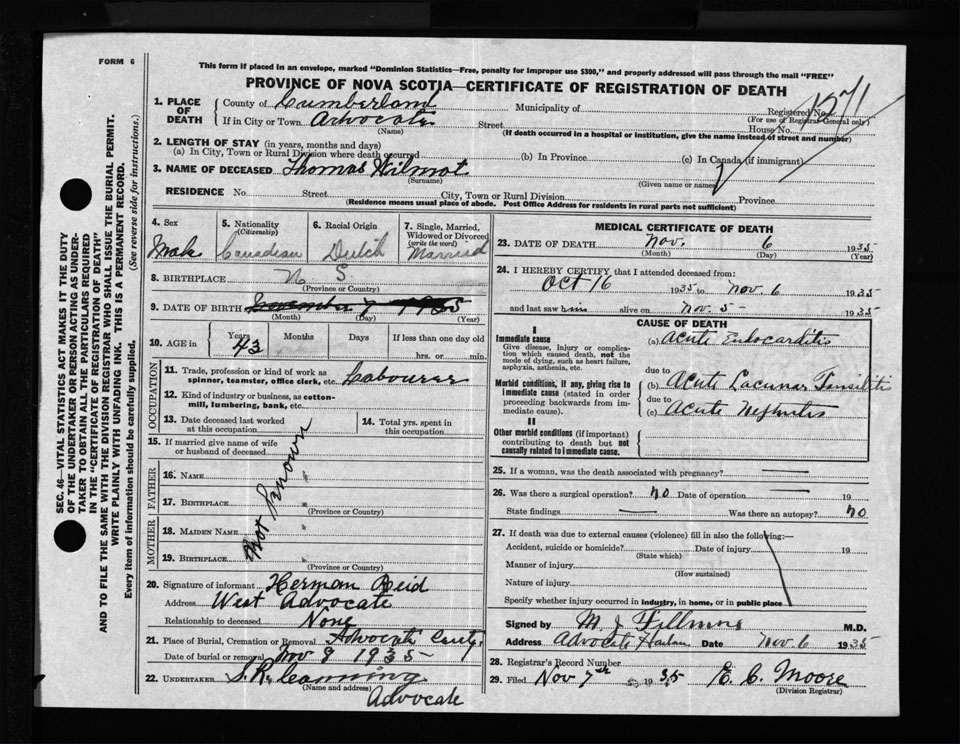 FORM 6
This form if placed in an envelope, marked "Dominion Statistics—Free, penalty for improper use $300," and properly addressed will pass through the mail "FREE"
PROVINCE OF NOVA SCOTIA—CERTIFICATE OF REGISTRATION OF DEATH
1. PLACE OF DEATH
County of Cumberland Municipality of Registered No. 1271
(For use of Registrar General only)
If in City or Town Advocate Street House No.
(Name) (If death occurred in a hospital or institution, give the name instead of street and number)
2. LENGTH OF STAY (in years, months and days)
(a) In City, Town or Rural Division where death occurred (b) In Province (c) In Canada (if immigrant)
3. NAME OF DECEASED Thomas Wilmot
(Surname) (Given name or names)
RESIDENCE No. Street City, Town or Rural Division Province
(Residence means usual place of abode. Post Office Address for residents in rural parts not sufficient)
SEC. 46—VITAL STATISTICS ACT MAKES IT THE DUTY
OF THE UNDERTAKER OR PERSON ACTING AS UNDER-
TAKER TO OBTAIN ALL THE PARTICULARS REQUIRED
IN THE "CERTIFICATE OF REGISTRATION OF DEATH"
AND TO FILE THE SAME WITH THE DIVISION REGISTRAR WHO SHALL ISSUE THE BURIAL PERMIT.
WRITE PLAINLY WITH UNFADING INK. THIS IS A PERMANENT RECORD.
Every item of information should be carefully supplied. (See reverse side for instructions.)
4. Sex
Male
5. Nationality
(Citizenship)
Canadian
6. Racial Origin
Dutch
7. Single, Married, Widowed or Divorced
(write the word)
Married
8. BIRTHPLACE N S.
(Province or Country)
9. DATE OF BIRTH November 7 1935
(Month) (Day) (Year)
10. AGE in Years Months Days If less than one day old
43 hrs. or min.
OCCUPATION
11. Trade, profession or kind of work as
spinner, teamster, office clerk, etc. Labourer
12. Kind of industry or business, as cotton-
mill, lumbering, bank, etc.
13. Date deceased last worked
at this occupation
14. Total yrs. spent in
this occupation
15. If married give name of wife
or husband of deceased
FATHER
16. NAME
17. BIRTHPLACE
(Province or Country)
MOTHER
18. MAIDEN NAME
19. BIRTHPLACE
(Province or Country)
Not Known
20. Signature of informant Herman Reid
Address West Advocate
Relationship to deceased None
21. Place of Burial, Cremation or Removal Advocate Cmty.
Date of burial or removal Nov 8 1935
22. UNDERTAKER S. R. Canning
(Name and address)
Advocate
MEDICAL CERTIFICATE OF DEATH
23. DATE OF DEATH Nov. 6 1935
(Month) (Day) (Year)
24. I HEREBY CERTIFY that I attended deceased from:
Oct 16 1935 to Nov. 6 1935
and last saw him alive on Nov. 5 - 1935
CAUSE OF DEATH
I
Immediate cause
Give disease, injury or complica-
tion which caused death, not the
mode of dying, such as heart failure,
asphyxia, asthenia, etc.
(a) Acute Endocarditis
due to
Morbid conditions, if any, giving rise to
immediate cause (stated in order
proceeding backwards from im-
mediate cause).
(b) Acute Lacunar Tonsilitis
due to
(c) Acute Nephritis
II
Other morbid conditions (if important)
contributing to death but not
causally related to immediate cause.
25. If a woman, was the death associated with pregnancy? —
26. Was there a surgical operation? no Date of operation — 19
State findings — Was there an autopsy? no
27. If death was due to external causes (violence) fill in also the following:—
Accident, suicide or homicide? Date of injury 19
(State which)
Manner of injury
(How sustained)
Nature of injury
Specify whether injury occurred in industry, in home, or in public place
Signed by M. J. Fillmore M.D.
Address Advocate Harbour Date Nov. 6 1935
28. Registrar's Record Number
29. Filed Nov 7th 1935 E. C. Moore
(Division Registrar)